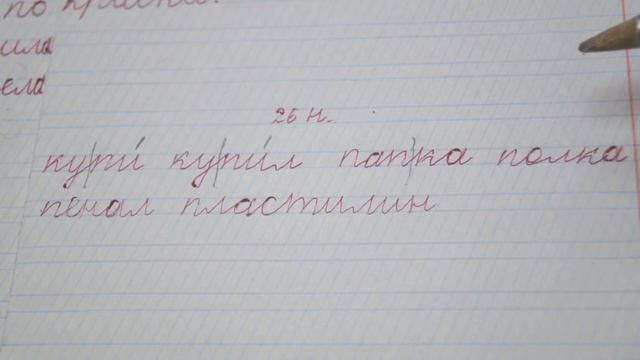 по
ила
ела
26 н.
ку/ри́ ку/ри́л пап/ка полка
пенал пластилин